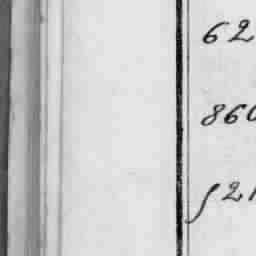 62
860
521